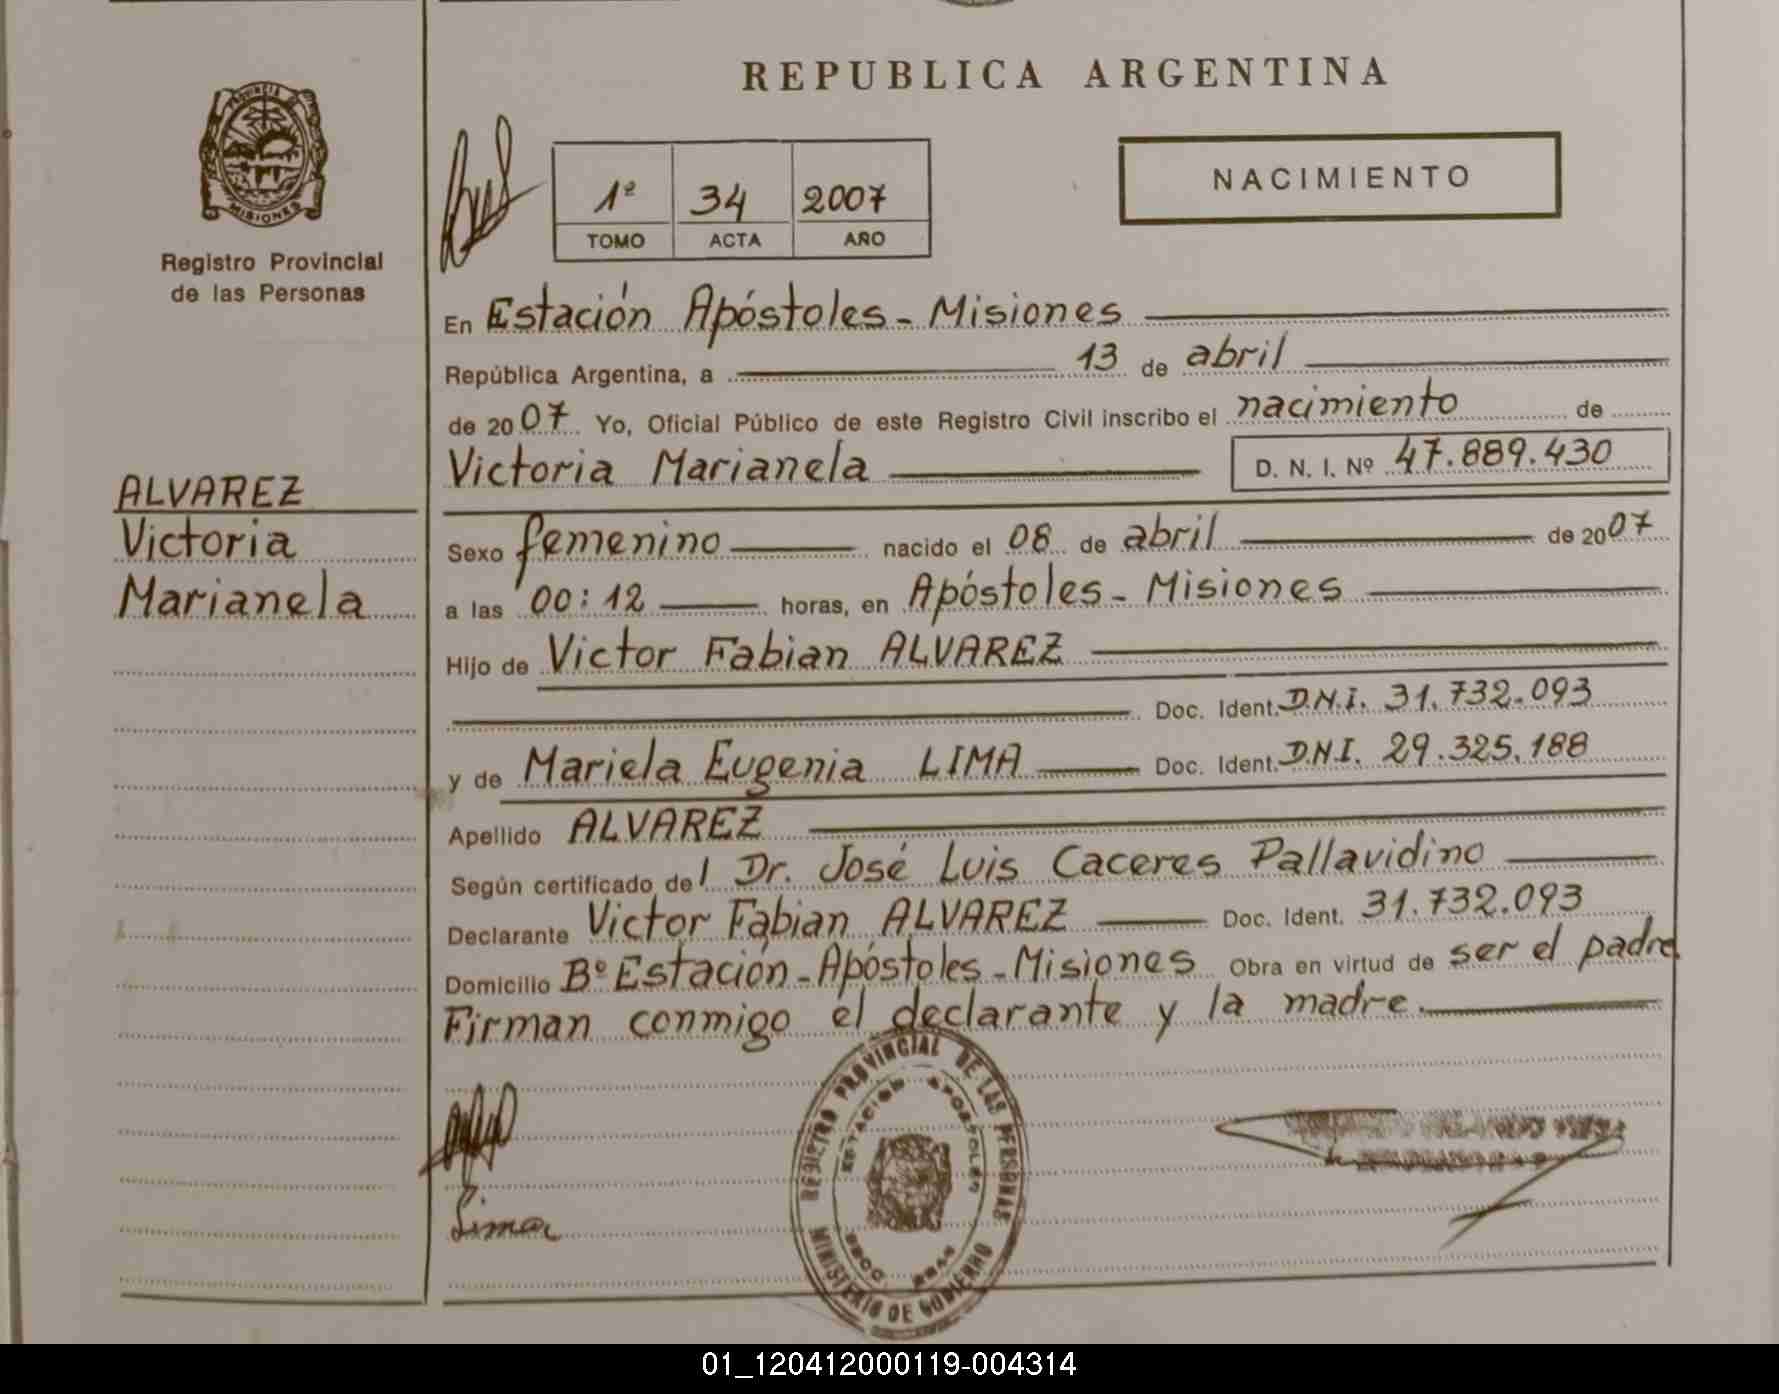 REPUBLICA ARGENTINA
PROVINCIA DE
MISIONES
Registro Provincial
de las Personas
1º 34 2007
TOMO ACTA AÑO
NACIMIENTO
En Estación Apóstoles - Misiones
República Argentina, a 13 de abril
de 2007 Yo, Oficial Público de este Registro Civil inscribo el nacimiento de
Victoria Marianela D. N. I. Nº 47.889.430
ALVAREZ
Victoria
Marianela
Sexo femenino nacido el 08 de abril de 2007
a las 00:12 horas, en Apóstoles - Misiones
Hijo de Victor Fabian ALVAREZ
Doc. Ident. D.N.I. 31.732.093
y de Mariela Eugenia LIMA Doc. Ident. D.N.I. 29.325.188
Apellido ALVAREZ
Según certificado del Dr. José Luis Caceres Pallavidino
Declarante Victor Fabian ALVAREZ Doc. Ident. 31.732.093
Domicilio Bº Estación - Apóstoles - Misiones Obra en virtud de ser el padre
Firman conmigo el declarante y la madre.
REGISTRO PROVINCIAL DE LAS PERSONAS
ESTACION APOSTOLES
MINISTERIO DE GOBIERNO
Lima
01_120412000119-004314